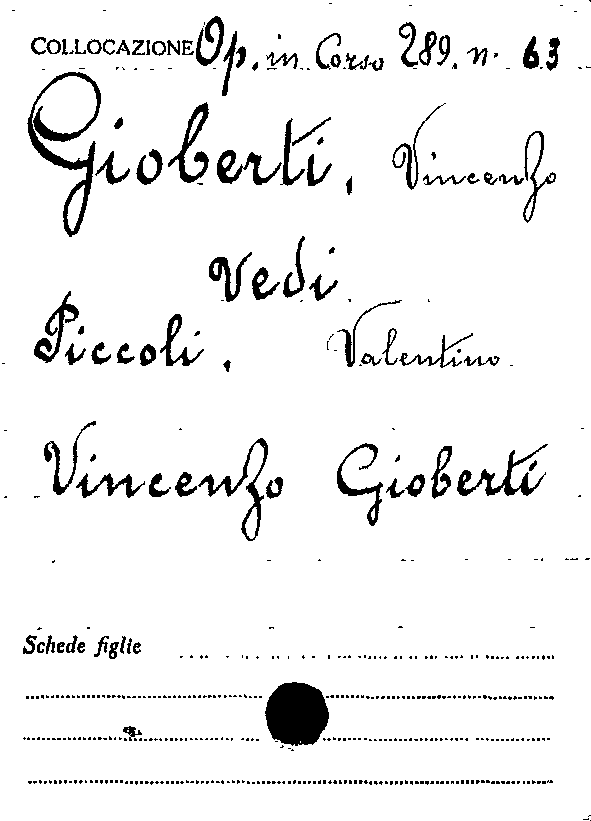 COLLOCAZIONE Op. in Corso 289. n. 63
Gioberti, Vincenzo
Vedi
Piccoli, Valentino
Vincenzo Gioberti
Schede figlie